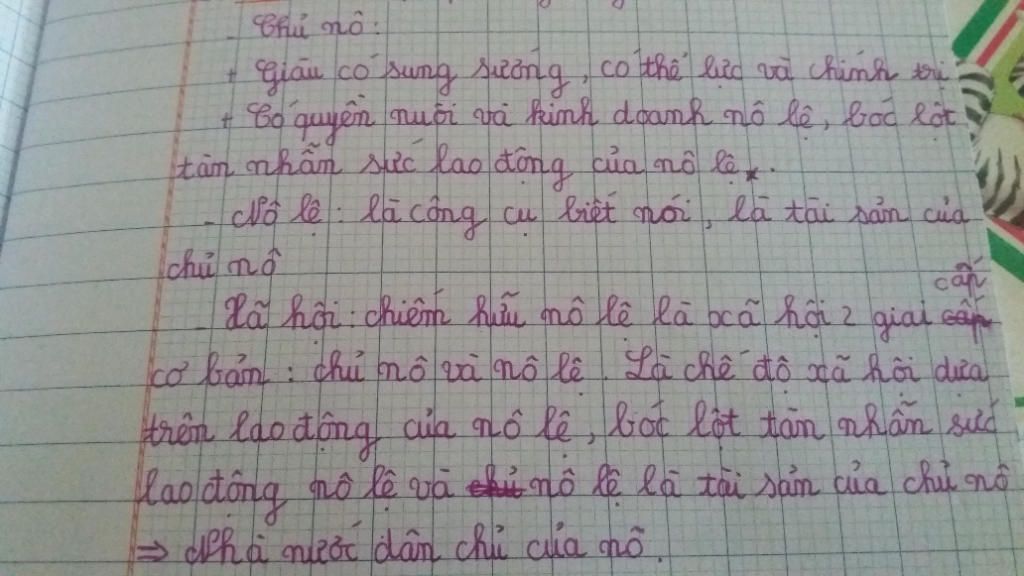 - Chủ nô:
+ Giàu có sung sướng, có thế lực và chính trị
+ Có quyền nuôi và kinh doanh nô lệ, bóc lột
tàn nhẫn sức lao động của nô lệ.
- Nô lệ: là công cụ biết nói, là tài sản của
chủ nô
cấp
- Xã hội: chiếm hữu nô lệ là xã hội 2 giai
cơ bản: chủ nô và nô lệ. Là chế độ xã hôi dựa
trên lao động của nô lệ, bóc lột tàn nhẫn sức
lao động nô lệ và nô lệ là tài sản của chủ nô
⇒ Nhà nước dân chủ của nô.